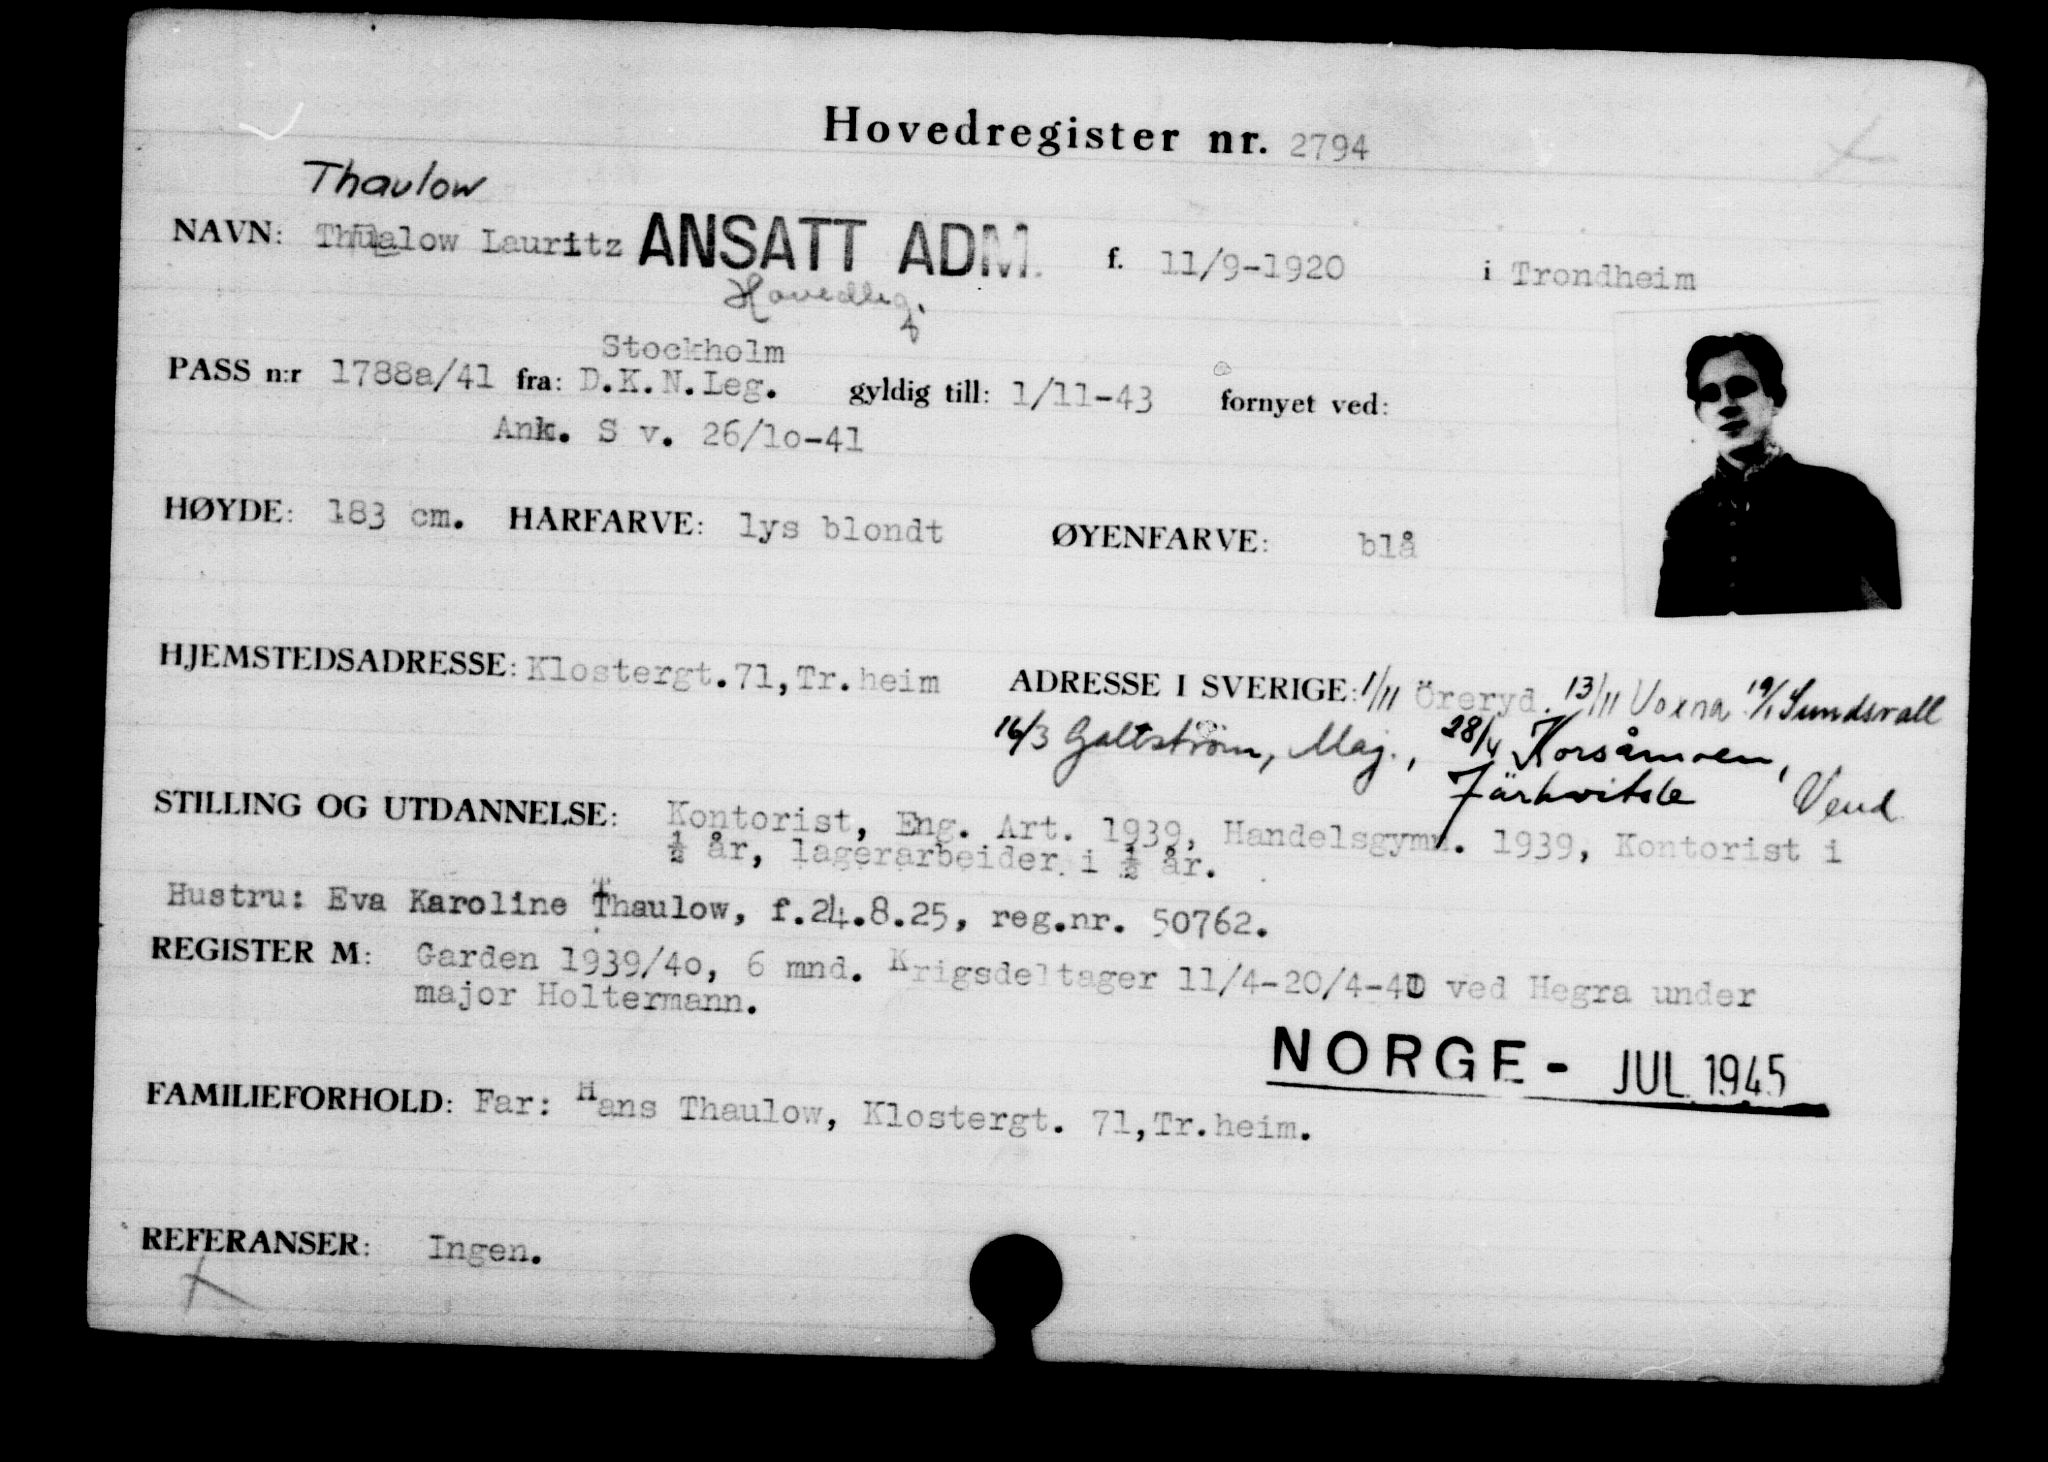 Hovedregister nr. 2794
Thaulow
NAVN: Thualow Lauritz ANSATT ADM. f. 11/9-1920 i Trondheim
Hovedleg.
Stockholm
PASS n:r 1788a/41 fra: D.K.N.Leg. gyldig till: 1/11-43 fornyet ved:
Ank. S v. 26/10-41
HØYDE: 183 cm. HARFARVE: lys blondt ØYENFARVE: blå
HJEMSTEDSADRESSE: Klostergt.71,Tr.heim ADRESSE I SVERIGE: 1/11 Öreryd. 13/11 Voxna 19/1 Sundsvall
16/3 Galtström, Maj., 28/4 Korsåmoen,
Järkvitsle Vend
STILLING OG UTDANNELSE: Kontorist, Eng. Art. 1939, Handelsgymn. 1939, Kontorist i
½ år, lagerarbeider i ½ år.
Hustru: Eva Karoline Thaulow, f.24.8.25, reg.nr. 50762.
REGISTER M: Garden 1939/40, 6 mnd. Krigsdeltager 11/4-20/4-40 ved Hegra under
major Holtermann.
NORGE - JUL 1945
FAMILIEFORHOLD: Far: Hans Thaulow, Klostergt. 71,Tr.heim.
REFERANSER: Ingen.